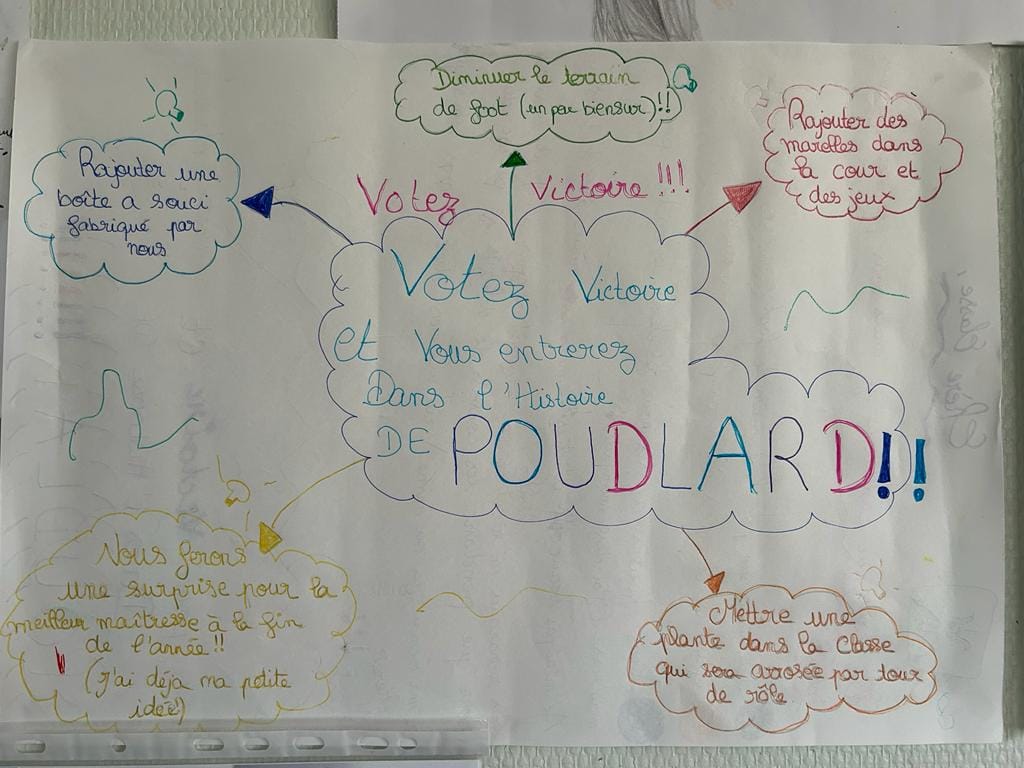 Diminuer le terrain
de foot (un peu biensur)!!
Rajouter une
boîte a souci
fabriqué par
nous
Rajouter des
marelles dans
la cour et
des jeux
Votez Victoire!!!
Votez Victoire
et Vous entrerez
Dans l'Histoire
DE POUDLARD!!
Nous ferons
une surprise pour la
meilleur maîtresse à la fin
de l'année!!
(j'ai déja ma petite
idée!)
Mettre une
plante dans la classe
qui sera arrosée par tour
de rôle